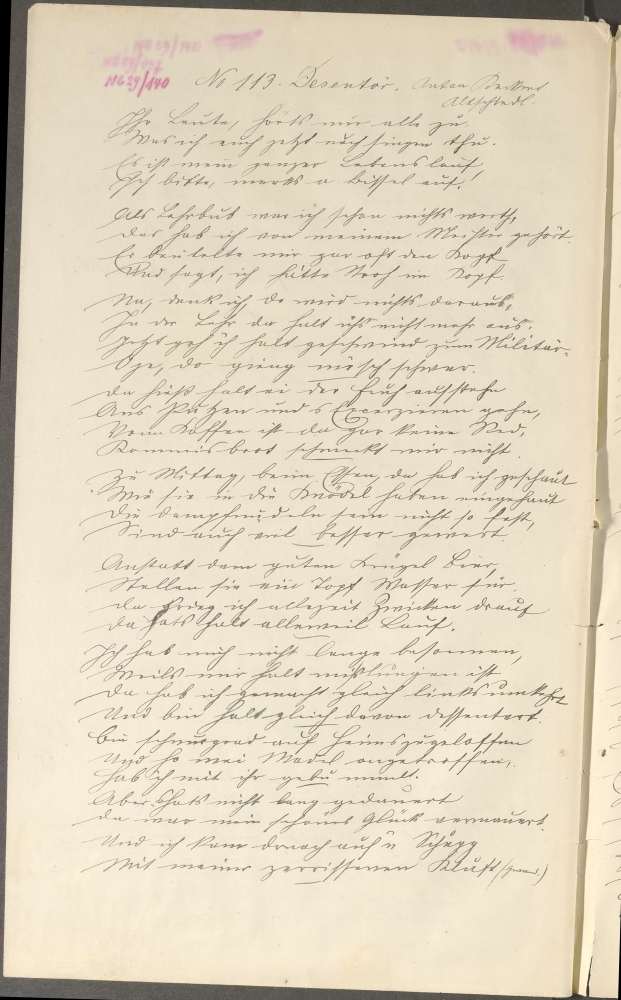 NG 29/140
No 113. Desentör. Anton
Altschtedl.
Ihr Leute, hörts mir alle zu
Was ich euch jetzt noch singen thu.
Es ist mein ganzer Lebenslauf,
Ich bitte, merkts a bissel auf.
Als Lehrbub war ich schon nichts werth,
Das hab ich von meinem Meister gehört.
Er beutelte mir gar oft den Kopf
Und sagt, ich hätte Stroh im Kopf.
Na, denk ich, da wird nichts daraus,
In der Lehr da halt ichs nicht mehr aus.
Jetzt geh ich halt geschwind zum Militär
Oje, da gieng mösch schwer.
Da hieß halt ei der Fruh aufstehn
Ans Putzen und s Exerzieren gehn,
Vom Kaffee ist da gar keine Red,
Kommisbrot schmeckt mir nicht.
Zu Mittag, beim Essen, da hab ich geschaut
Wie sie in die Knödel haben eingehaut
Die Dampfnudeln sein nicht so fest,
Sind auch viel besser gewest.
Anstatt dem guten Krügel Bier,
Stellen sie ein Topf Wasser für.
Da krieg ich allezeit Zwicken drauf
Da hats halt alleweil Lauf.
Ich hab mich nicht lange besonnen,
Weils mir halt mißlungen ist
Da hab ich gemacht gleich links umkehrt
Und bin halt gleich davon dessentert.
Bin schnurgrad auf heimszugeloffen
Und ho mei Madel angetroffen,
Hab ich mit ihr
Aber thats nicht lang gedauert
Da war mein schönes Glück vermauert.
Und ich kam drnach auf'n Schupp
Mit meiner zerrissenen Kluft